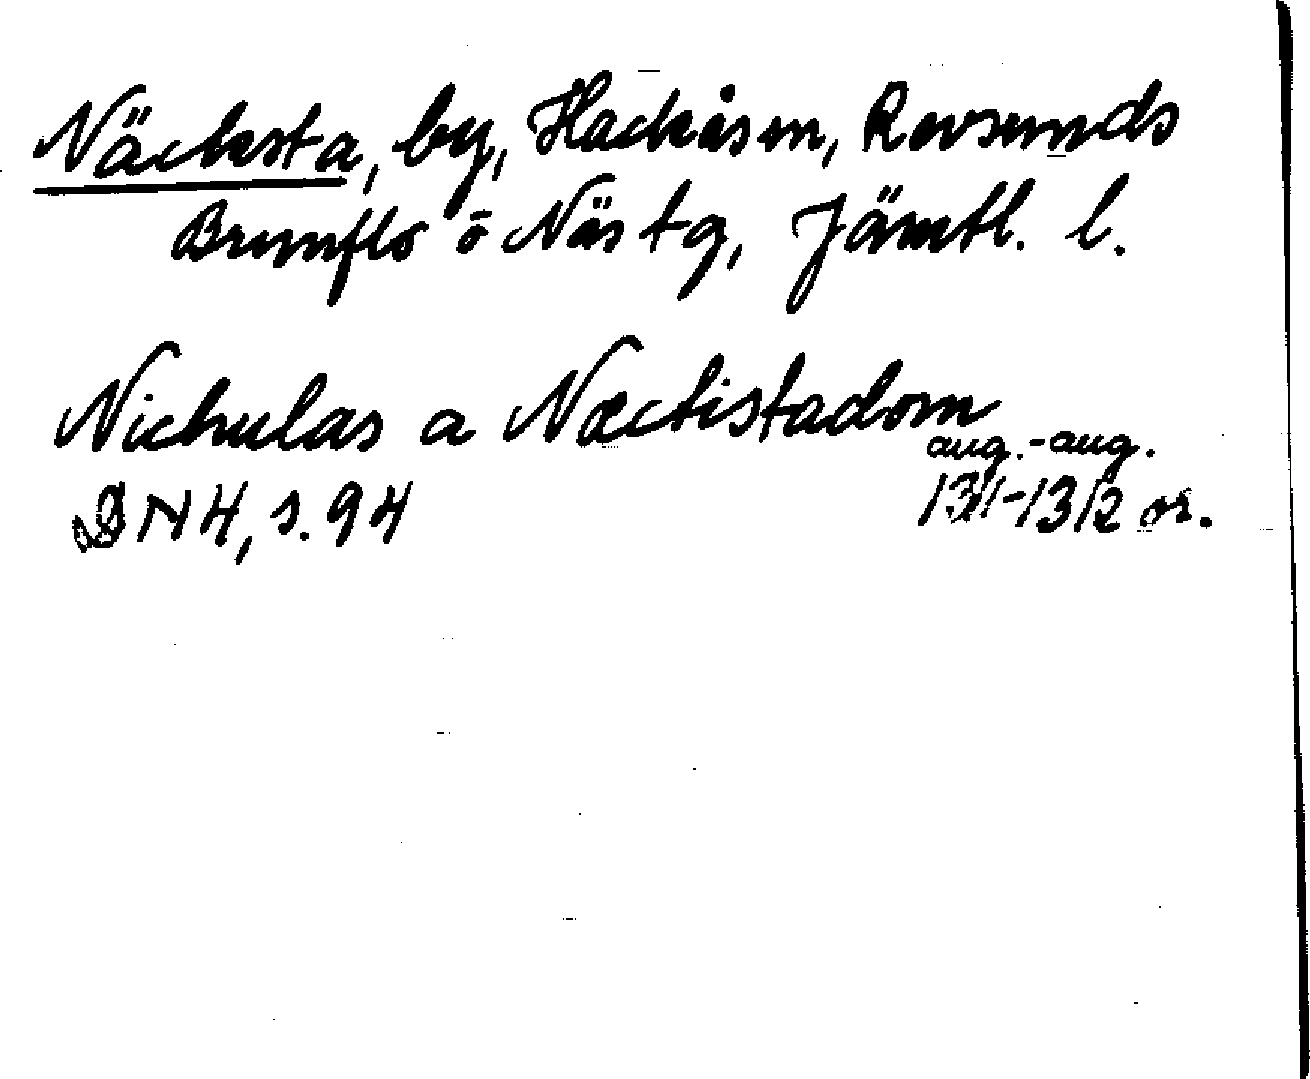 Näcksta, by, Hackås sn, Revsunds
Brunflo o Näs tg, Jämtl. l.
Nichulas a Næctistadom
aug.-aug.
DN 4, s. 94 1311-1312 or.